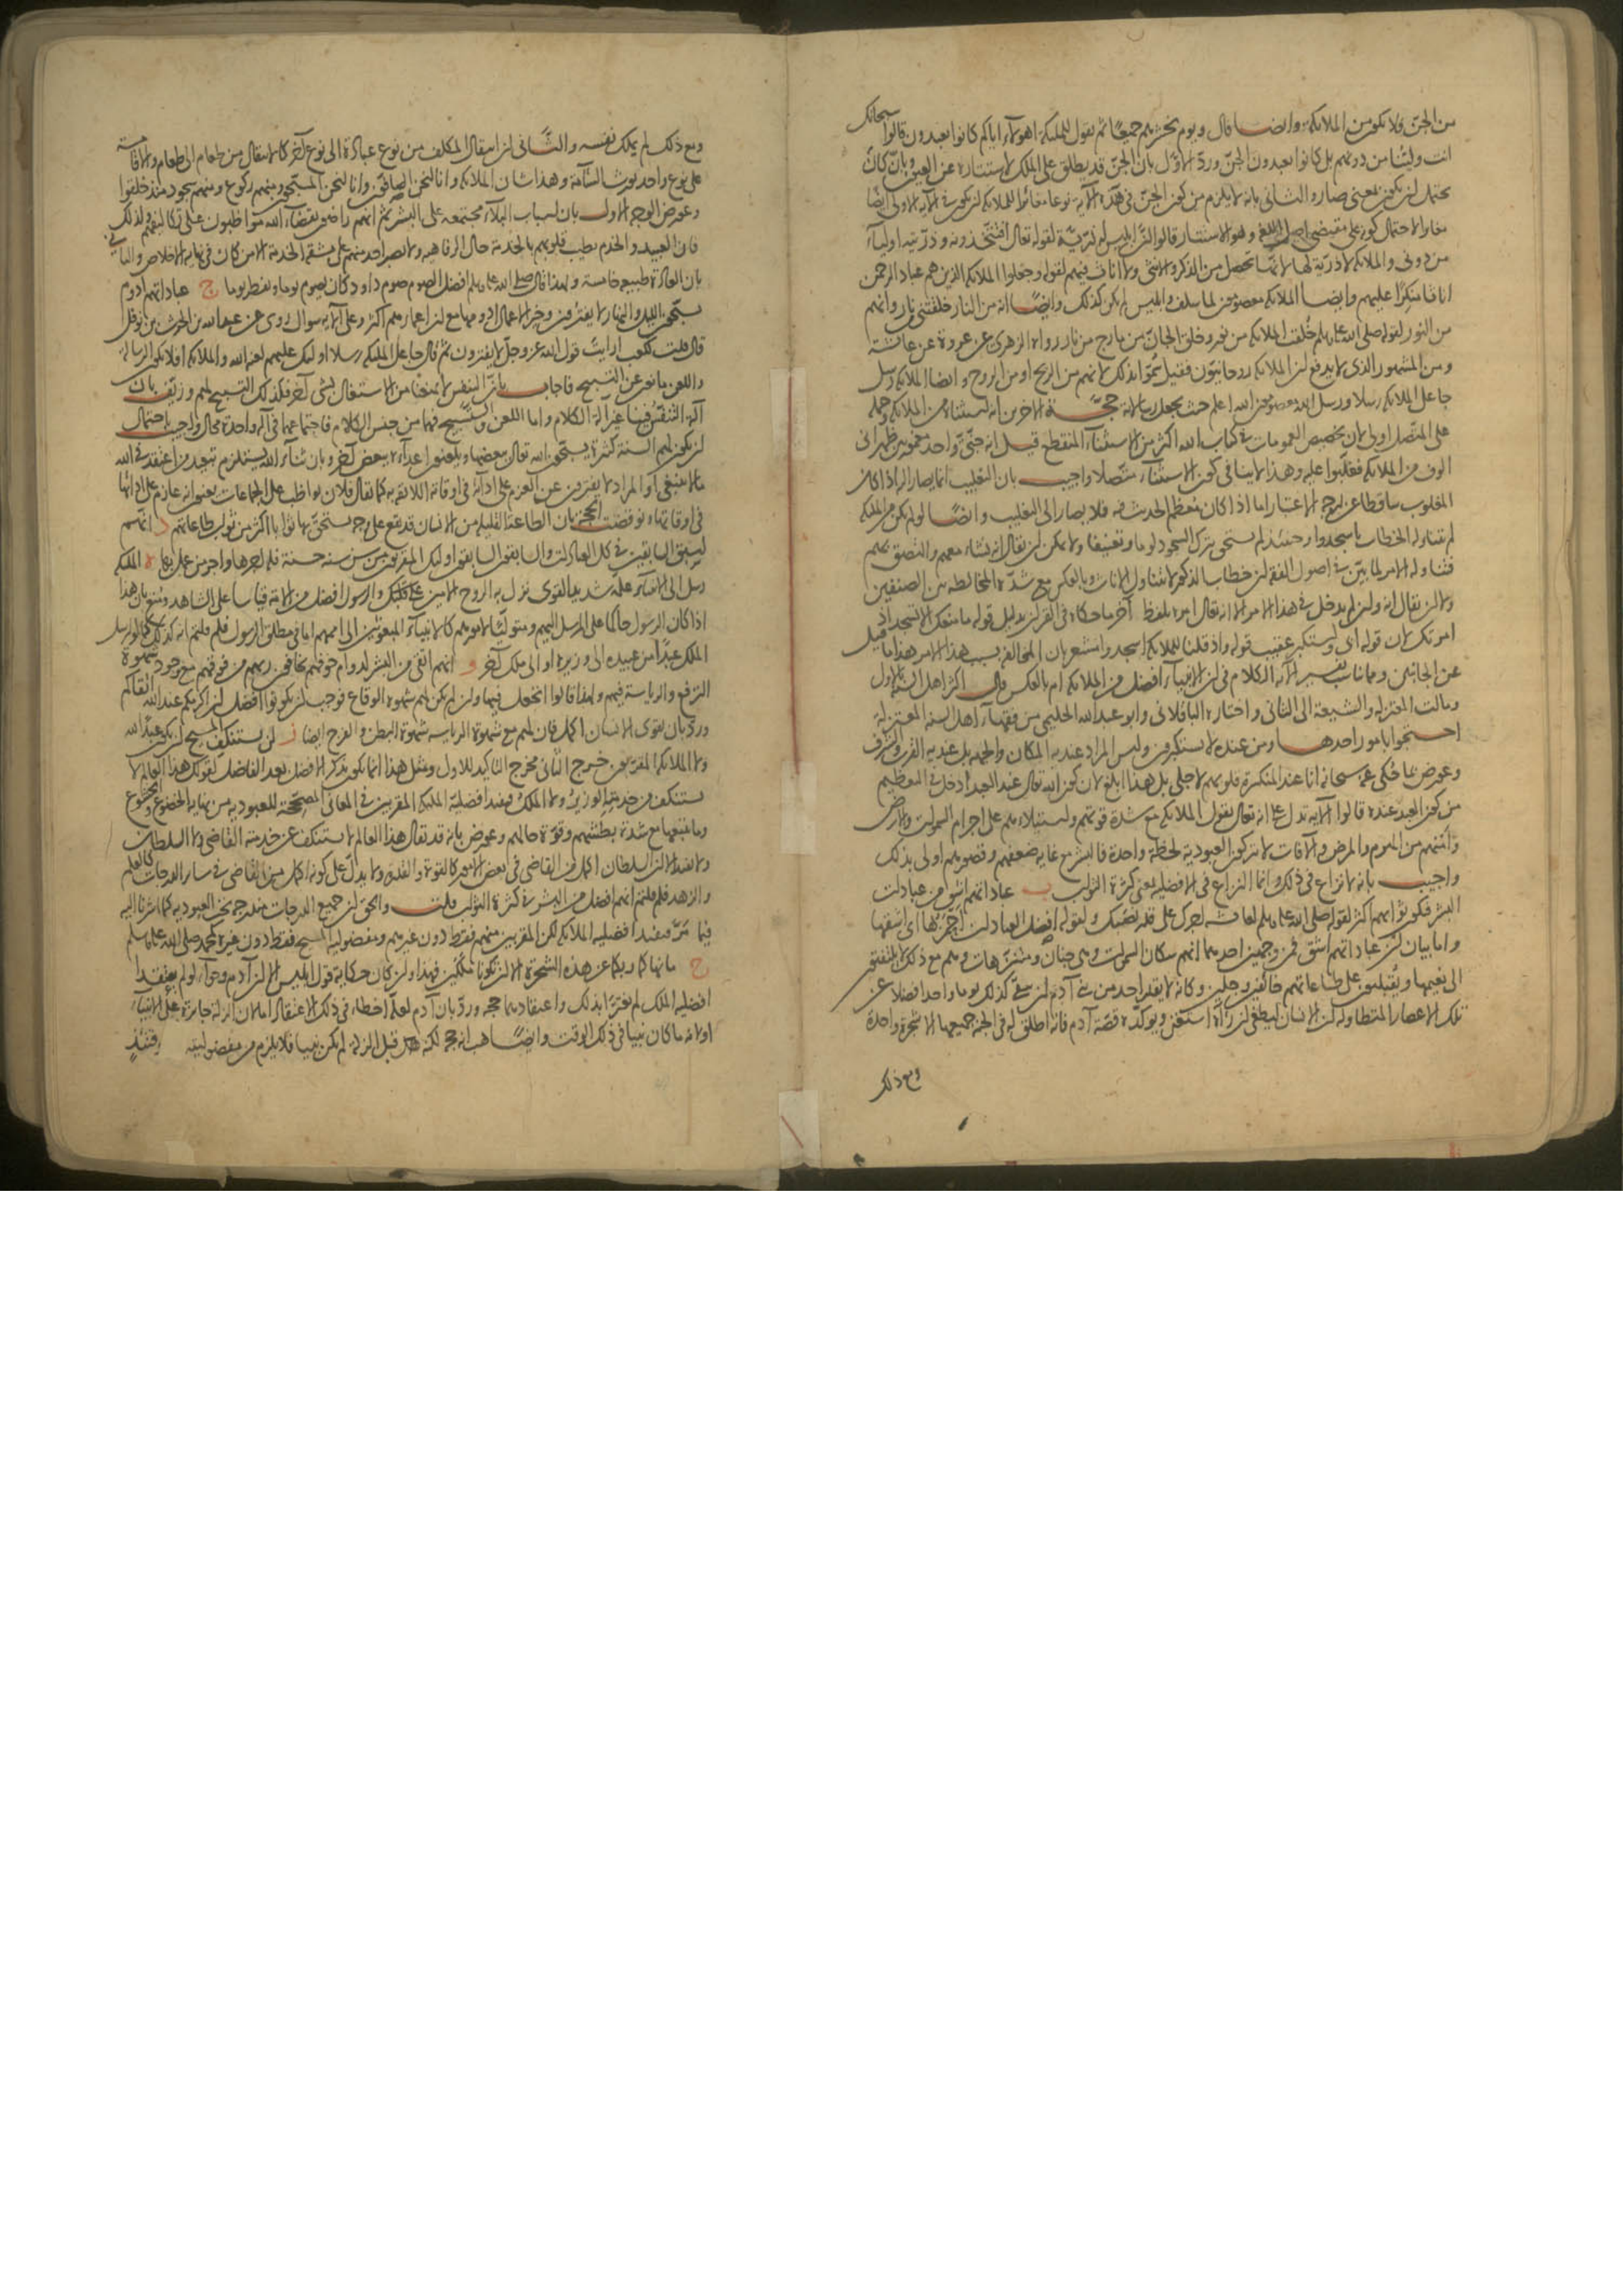 من الجن فلا يكون من الملائكة وايضا قال ويوم نحشرهم جميعا ثم نقول للملئكة اهولاء اياكم كانوا يعبدون قالوا سبحانك
انت ولينا من دونهم بل كانوا يعبدون الجن وردّ الاول بان الجن قد يطلق على الملك لاستتاره عن العيون وبان كان
يحتمل ان يكون بمعنى صار والثانى بانه لا يلزم من كون الجن فى هذه الآية نوعا مغائرا للملائكة ان يكون فى الآية الاولى ايضا
مغايرا لاحتمال كونه على مقتضى اصل اللغة وهو الاستتار قالوا ان ابليس له ذريّة لقوله تعالى افتتّخذونه وذرّيته اولياء
من دونى والملائكة لا ذرّية لها لانها تحصل من الذكر والانثى ولا اناث فيهم لقوله وجعلوا الملائكة الذين هم عباد الرحمن
اناثا منكرا عليهم وايضا الملائكة معصومون لما سلف وابليس لم يكن كذلك وايضا انه من النار خلقتنى من نار وانهم
من النور لقوله صلى الله عليه وسلم خُلقت الملائكة من نور وخلق الجان من مارج من نار رواه الزهرى عن عروة عن عائشة
ومن المشهور الذى لا يدفع ان الملائكة روحانيّون فقيل سُمّوا بذلك لانهم من الريح او من الروح وايضا الملائكة رسل
جاعل الملائكة رسلا ورسل الله معصومون الله اعلم حيث يجعل رسالاته حجّة الاخرين انه استثناه من الملائكة وحمله
على المتّصل اولى لان تخصيص العمومات فى كتاب الله اكثر من الاستثناء المنقطع قيل انه جنّىّ واحد مغمور بين ظهرانى
الوف من الملائكة فغلّبوا عليه وهذا لا ينافى كون الاستثناء متّصلا واجيب بان التغليب انما يصار اليه اذا كان
المغلوب ساقطا عن درجة الاعتبار اما اذا كان مُعظم الحديث فيه فلا يصار الى التغليب وايضا لو لم يكن من الملئكة
لم يتناوله الخطاب باسجدوا وحينئذ لم يستحق بترك السجود لوما وتعنيفا ولا يمكن ان يقال انه نشاء معهم والتصق بهم
فتناوله الامر لما بيّن فى اصول الفقه ان خطاب الذكور لا يتناول الاناث وبالعكس مع شدّة المخالطة بين الصنفين
ولا ان يقال انه وان لم يدخل فى هذا الامر الا انه تعالى امره بلفظ آخر ما حكاه فى القرآن بدليل قوله ما منعك الا تسجد اذ
امرتك لان قوله ابى واستكبر عقيب قوله واذ قلنا للملائكة اسجدوا مشعر بان المخالفة بسبب هذا الامر هذا ما قيل
عن الجانبين ومما يناسب تفسير الآية الكلام فى ان الانبياء افضل من الملائكة ام بالعكس قال اكثر اهل السنة بالاول
ومالت المعتزلة والشيعة الى الثانى واختاره الباقلانى وابو عبد الله الحليمى من فقهاء اهل السنة المعتزلة
احتجوا بامور احدها ومن عنده لا يستكبرون وليس المراد عندية المكان والجهة بل عندية القرب والشرف
وعورض بما حُكى عنه سبحانه انا عند المنكسرة قلوبهم لاجلى بل هذا ابلغ لان كون الله تعالى عند العبد ادخل فى التعظيم
من كون العبد عنده قالوا الآية تدل على انه تعالى يقول الملائكة مع شدة قوتهم واستيلاءهم على اجرام السموات والارض
وأمنهم من الهرم والمرض والآفات لا يتركون العبودية لحظة واحدة فالبشر مع غاية ضعفهم وقصورهم اولى بذلك
واجيب بانه لا نزاع فى ذلك وانما النزاع فى الافضلية بمعنى كثرة الثواب ب عباداتهم اشق من عبادات
البشر فيكون ثوابهم اكثر لقوله صلى الله عليه وسلم لعائشة اجرك على قدر نصبك ولقوله افضل العبادات احمزها اى اشقها
واما بيان ان عباداتهم اشق فمن وجهين احدهما انهم سكان السموات وهى جنان ومتنزهات وهم مع ذلك لا يلتفتون
الى نعيمها ويُقبلون على طاعاتهم خائفين وجلين وكانه لا يقدر احد من بنى آدم ان يبقى كذلك يوما واحدا فضلا عن
تلك الاعصار المتطاولة ان الانسان ليطغى ان رآه استغنى ويؤكّده قصّة آدم فانه اطلق له فى الجنة جميعها الا شجرة واحدة
ومع ذلك
ومع ذلك لم يملك نفسه والثانى ان انتقال المكلف من نوع عبادة الى نوع آخر كالانتقال من طعام الى طعام والاقامة
على نوع واحد يورث السآمة وهذا شان الملائكة وانا لنحن الصافون وانا لنحن المسبّحون ومنهم ركوع ومنهم سجود منذ خلقوا
وعورض الوجه الاول بان اسباب البلاء مجتمعة على البشر ثم انهم راضون بقضاء الله مواظبون على تكاليفهم ولذلك
فان العبيد والخدم تطيب قلوبهم بالخدمة حال الرفاهية ولا يصبر احد منهم على مشقة الخدمة الا من كان فى نهاية الاخلاص والثانى
بان العادة طبيعة خامسة ولهذا قال صلى الله عليه وسلم افضل الصوم صوم داود كان يصوم يوما ويفطر يوما ج عباداتهم ادوم
يسبّحون الليل والنهار لا يفترون وخير الاعمال ادومها مع ان اعمارهم اكثر وعلى الآية سوال روى عن عبد الله بن الحرث بن نوفل
قال قلت لكعب ارايت قول الله عز وجل لا يفترون ثم قال جاعل الملئكة رسلا اولئك عليهم لعنة الله والملائكة افلا تكون الرسالة
واللعن مانعين عن التسبيح فاجاب بانّ التنفس لا يمنعنا من الاشتغال بشى آخر فكذلك التسبيح لهم وزيّف بان
آلة التنفّس فينا غير آلة الكلام واما اللعن والتسبيح فهما من جنس الكلام فاجتماعهما فى آلة واحدة محال واجيب باحتمال
ان يكون لهم السنة كثيرة يسبّحون الله تعالى ببعضها ويلعنون اعداءه ببعض آخر وبان ثناء الله يستلزم تبعيد من اعتقد فى الله
ما لا ينبغى او المراد لا يفترون عن العزم على ادائه فى اوقاته اللائقة به كما يقال فلان يواظب على الجماعات يعنون انه عازم على ادائها
فى اوقاتها ونوقضت الحجة بان الطاعة القليلة من الانسان قد تقع على وجه يستحقّ بها ثوابا اكثر من ثواب طاعاتهم د انهم
اسبق السابقين فى كل العبادات والسابقون السابقون اولئك المقربون من سنّ سنة حسنة فله اجرها واجر من عمل بها ه الملئكة
رسل الى الانبياء علّمه شديد القوى نزل به الروح الامين على قلبك والرسول افضل من الامة قياسا على الشاهد ومُنع بان هذا
اذا كان الرسول حاكما على المرسل اليهم ومتولّيا لامورهم كالانبياء المبعوثين الى اممهم اما فى مطلق الرسول فلم قلتم انه كذلك كما لو ارسل
الملك عبدا من عبيده الى وزيره او الى ملك آخر و انهم اتقى من البشر لدوام خوفهم يخافون ربهم من فوقهم مع وجود شهوة
الترفع والرياسة فيهم ولهذا قالوا اتجعل فيها وان لم يكن لهم شهوة الوقاع فوجب ان يكونوا افضل ان اكرمكم عند الله اتقاكم
وردّ بان تقوى الانسان اكمل فان لهم مع شهوة الرياسة شهوة البطن والفرج ايضا ز لن يستنكف المسيح ان يكون عبدا لله
ولا الملائكة المقربون خرج الثانى مخرج التاكيد للاول ومثل هذا انما يكون بذكر الافضل بعد الفاضل كقولك هذا العالم لا
يستنكف من خدمته الوزير ولا الملك فيفيد افضليّة الملئكة المقربين فى المعانى المصحّحة للعبودية من نهاية الخضوع والخشوع
وما يتبعها مع شدة بطشهم وقوة حالهم وعورض بانه قد يقال هذا العالم لا يستنكف عن خدمته القاضى ولا السلطان
ولا يفيد الا ان السلطان اكمل من القاضى فى بعض الامور كالقوة والقدرة ولا يدلّ على كونه اكمل من القاضى فى سائر الدرجات كالعلم
والزهد فلم قلتم انهم افضل من البشر فى كثرة الثواب قلت والحق ان جميع الدرجات مندرجة تحت العبودية كما اشرنا اليه
فيما مرّ فيفيد افضلية الملائكة لكن المقربين منهم فقط دون غيرهم ومفضولية المسيح فقط دون غيره كمحمد صلى الله عليه وسلم
ح ما نهاكما ربكما عن هذه الشجرة الا ان تكونا ملكين فهذا وان كان حكاية قول ابليس الا ان آدم وحواء لو لم يعتقدا
افضلية الملك لم يغترّا بذلك واعتقادهما حجة وردّ بان آدم لعله اخطاء فى ذلك الاعتقاد اما لان الزلة جائزة على الانبياء
او لانه ما كان نبيا فى ذلك الوقت وايضا هب انه حجة لكنه قبل الزلة لم يكن نبيا فلا يلزم من مفضوليته وقتئذٍ